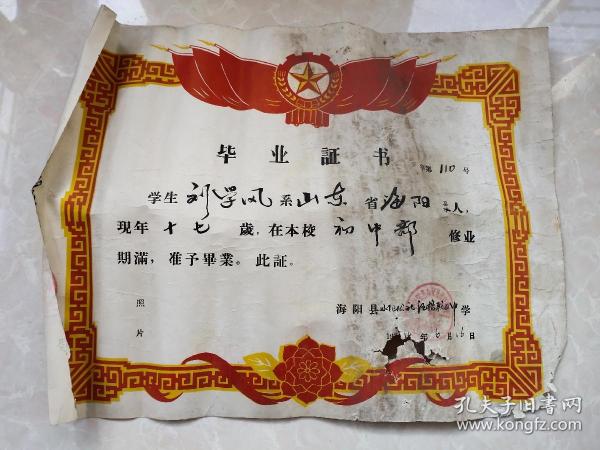 毕业証书
第 110 号
学生 刘学风 系 山东 省 海阳 县人,
现年 十七 歲, 在本校 初中部 修业
期滿, 准予畢業。此証。
照
片
海阳县 中学
年 6 月 16 日
孔夫子旧书网
www.kongfz.com